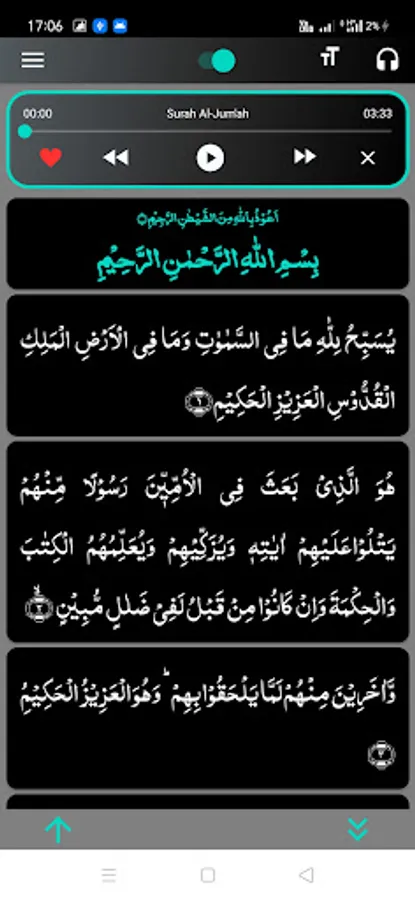 17:06
2%
00:00 Surah Al-Jumlah 03:33
اَعُوْذُ بِاللّٰهِ مِنَ الشَّيْطٰنِ الرَّجِيْمِ
بِسْمِ اللّٰهِ الرَّحْمٰنِ الرَّحِيْمِ
يُسَبِّحُ لِلّٰهِ مَا فِى السَّمٰوٰتِ وَمَا فِى الْاَرْضِ الْمَلِكِ
الْقُدُّوْسِ الْعَزِيْزِ الْحَكِيْمِ ۱
هُوَ الَّذِىْ بَعَثَ فِى الْاُمِّيّٖنَ رَسُوْلًا مِّنْهُمْ
يَتْلُوْا عَلَيْهِمْ اٰيٰتِهٖ وَيُزَكِّيْهِمْ وَيُعَلِّمُهُمُ الْكِتٰبَ
وَالْحِكْمَةَ وَاِنْ كَانُوْا مِنْ قَبْلُ لَفِىْ ضَلٰلٍ مُّبِيْنٍ ۲
وَّاٰخَرِيْنَ مِنْهُمْ لَمَّا يَلْحَقُوْا بِهِمْ ؕ وَهُوَ الْعَزِيْزُ الْحَكِيْمُ
۳